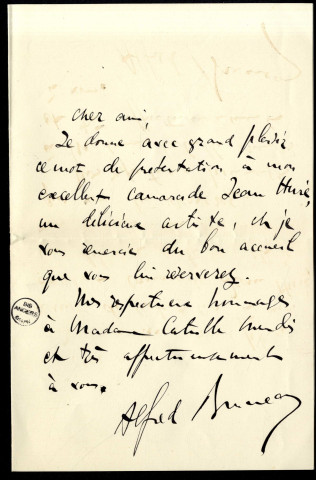 cher ami,
Je donne avec grand plaisir
ce mot de présentation à mon
excellent camarade Jean Huré,
un délicieux artiste, et je
vous remercie du bon accueil
que vous lui réserverez.
Mes respectueux hommages
à Madame Catulle Mendès
et très affectueusement
à vous.
Alfred Bruneau
BIB
ANGERS